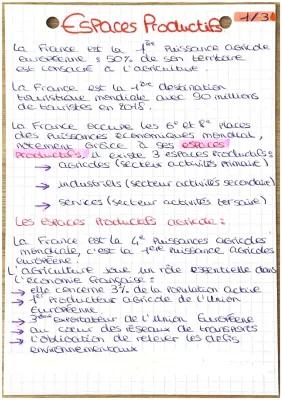 Espaces Productifs
1/3
La France est la 1ère Puissance agricole
européenne : 50% de son territoire
est consacré à l'agriculture.
La France est la 1ère destination
touristique mondiale avec 90 millions
de touristes en 2018.
La France occupe les 6e et 7e places
des Puissances économiques mondial,
notement Grâce à ses espaces
Productifs, il existe 3 espaces Productifs :
→ agricoles (secteur activités primaire)
→ industriels (secteur activités secondaire)
→ services (secteur activités tertiaire)
Les espaces Productifs agricole :
La France est la 4e Puissances agricoles
mondiale, c'est la 1ère Puissances agricoles
européenne.
L'agriculture joue un rôle essentielle dans
l'économie Française :
→ elle concerne 3% de la Population active
→ 1er Producteur agricole de l'Union
Européenne
→ 3ème exportateur de l'Union Européene
→ au cœur des réseaux de transports
→ l'obligation de relever les défis
environnementaux